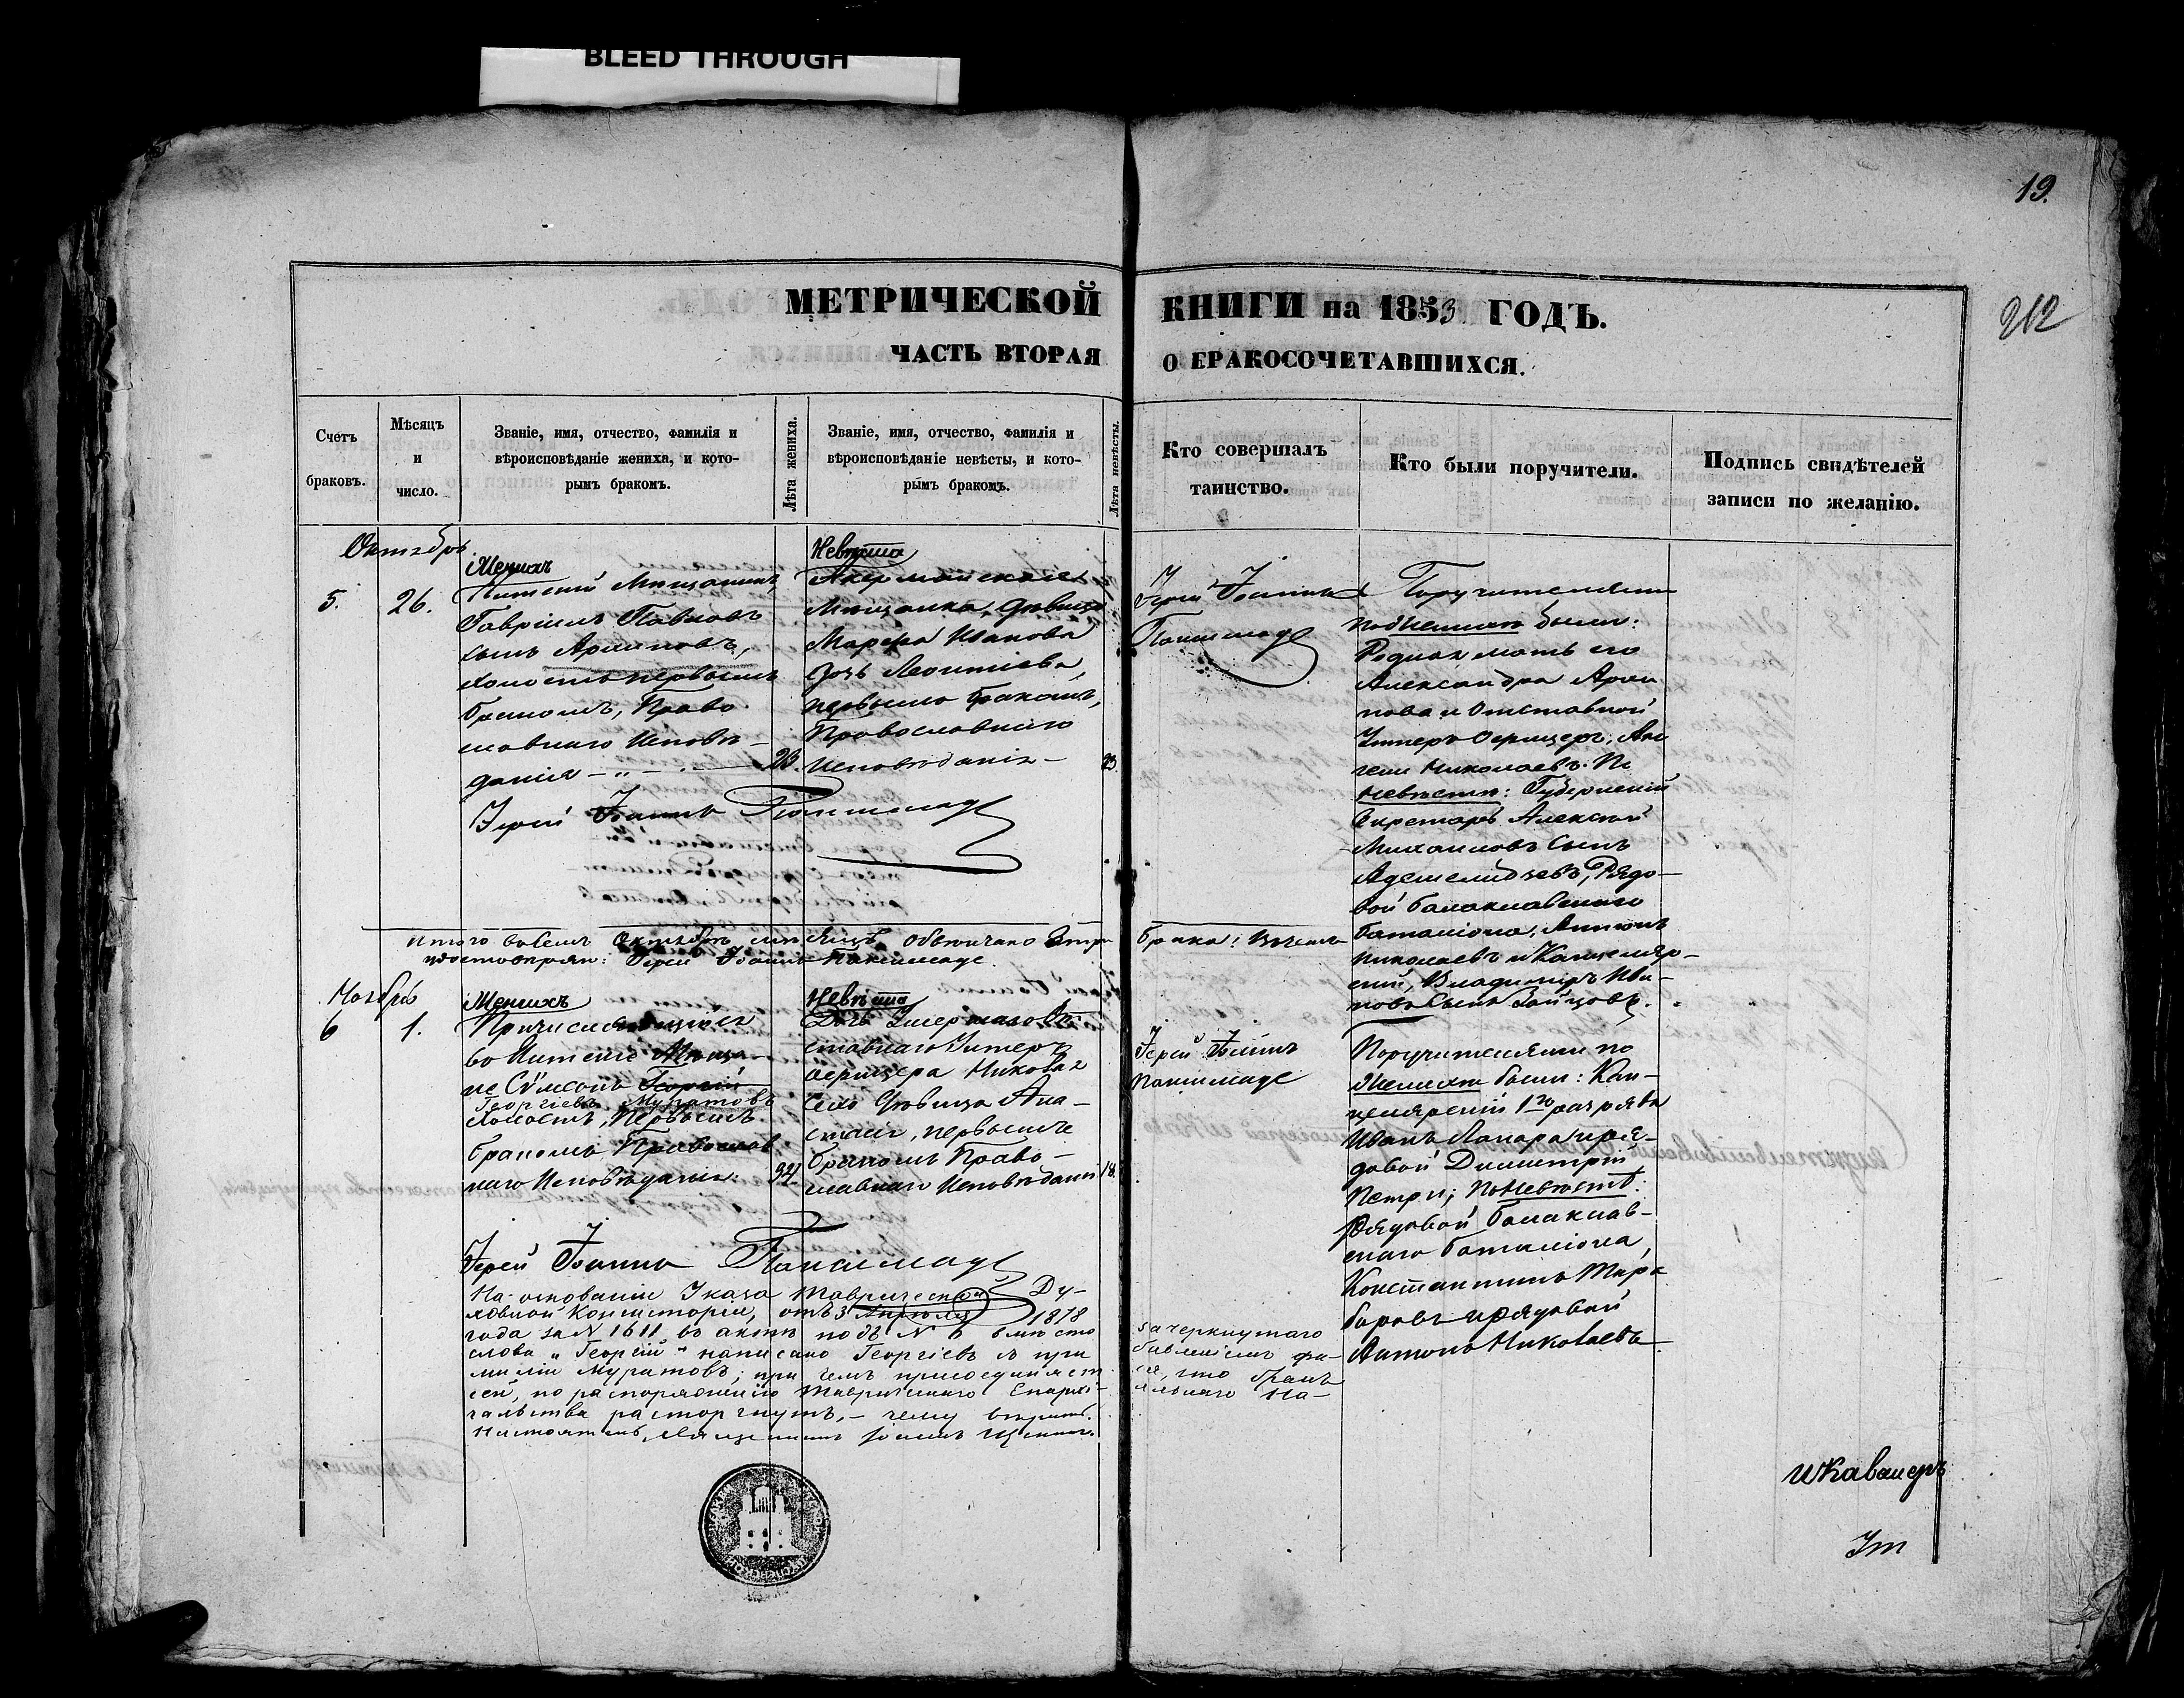 BLEED THROUGH
19.
212
МЕТРИЧЕСКОЙ КНИГИ на 1853 ГОДЪ.
ЧАСТЬ ВТОРАЯ О БРАКОСОЧЕТАВШИХСЯ.
Счетъ
браковъ.
Мѣсяцъ
и
число.
Званіе, имя, отчество, фамилія и
вѣроисповѣданіе жениха, и кото-
рымъ бракомъ.
Лѣта жениха.
Званіе, имя, отчество, фамилія и
вѣроисповѣданіе невѣсты, и кото-
рымъ бракомъ.
Лѣта невѣсты.
Кто совершалъ
таинство.
Кто были поручители.
Подпись свидѣтелей
записи по желанію.
Октябрь
5. 26.
Женихъ
Мещанинъ,
Гавріилъ Павловъ
сынъ Архиповъ,
холостъ первымъ
бракомъ, Право
славнаго Исповѣ-
данія 23.
Невѣста
Акерманская
Мещанка, дѣвица
Марфа Иванова
дочь Леонтіева,
первымъ бракомъ,
Православнаго
Исповѣданія 23.
Іерей Іоаннъ
Іерей Іоаннъ
Поручителями
по Женихѣ были:
Родная мать его
Александра Архи
пова и Отставной
Унтеръ Офицеръ,
Николаевъ. По
Невѣстѣ: Губернскій
Секретарь Алексѣй
Михаиловъ Сынъ
Рядо-
вой балаклавскаго
баталіона, Антонъ
Николаевъ и Канцеляр-
скій, Владиміръ Ива-
новъ Сынъ Зайцовъ.
Итого Октябрѣ мѣсяцѣ обвѣнчано
брака:
Іерей Іоаннъ
Ноябрь
6 1.
Женихъ
во
не Сѵмеонъ Георгій
Георгіевъ Муратовъ
холостъ, первымъ
бракомъ, Православ
наго Исповѣданія.
Невѣста
Дочь Умершаго От-
ставнаго Унтеръ
офицера Никола
дѣвица Ана-
стасія, первымъ
бракомъ Право-
славнаго Исповѣданія 18.
Іерей Іоаннъ
Іерей Іоаннъ
Поручителями по
Женихѣ были: Кан-
целярскій 1го разряда
Иванъ и ря-
довой Димитрій
Петри; по Невѣстѣ:
Рядовой балаклав-
скаго баталіона,
Константинъ
и рядовой
Антонъ Николаевъ.
На основаніи Указа Таврической Ду-
ховной Консисторіи, отъ 3 Апрѣля 1878
года за N 1611, въ актѣ подъ N 6 вмѣсто зачеркнутаго
слова „Георгій" написано Георгіевъ съ при бавленіемъ фа-
миліи Муратовъ; при чемъ
по распоряженію Таврическаго Епархі-
альнаго На-
чальства расторгнутъ, — чему
Настоятель, священникъ Іоаннъ
и Кавалеръ